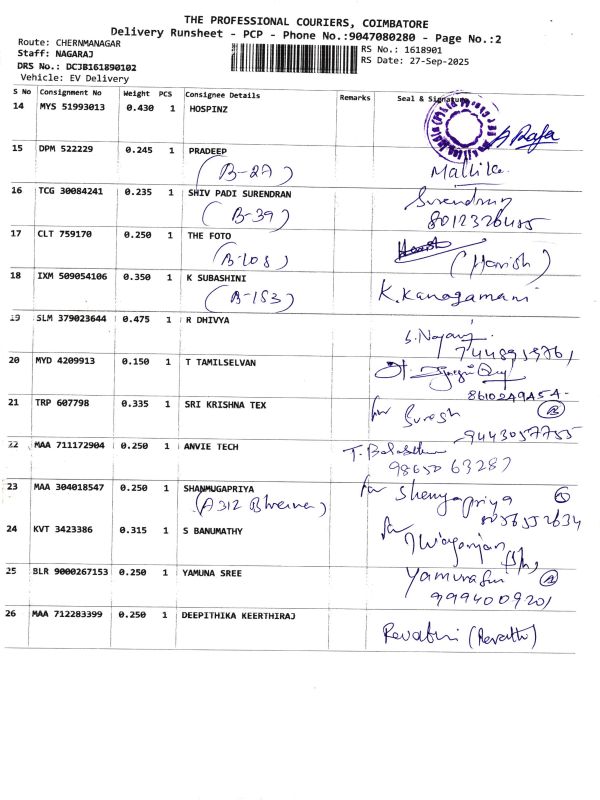 THE PROFESSIONAL COURIERS, COIMBATORE
Delivery Runsheet - PCP - Phone No.:9047080280 - Page No.:2
Route: CHERNMANAGAR
Staff: NAGARAJ
DRS No.: DCJB161890102
Vehicle: EV Delivery
RS No.: 1618901
RS Date: 27-Sep-2025
S No Consignment No Weight PCS Consignee Details Remarks Seal & Signature
14 MYS 51993013 0.430 1 HOSPINZ
15 DPM 522229 0.245 1 PRADEEP
(B-27) Mallika
16 TCG 30084241 0.235 1 SHIV PADI SURENDRAN
(B-39)
17 CLT 759170 0.250 1 THE FOTO
(B-108) (Harish)
18 IXM 509054106 0.350 1 K SUBASHINI
(B-153) K.Kanagamani
19 SLM 379023644 0.475 1 R DHIVYA
20 MYD 4209913 0.150 1 T TAMILSELVAN
21 TRP 607798 0.335 1 SRI KRISHNA TEX
for Suresh
9443057755
22 MAA 711172904 0.250 1 ANVIE TECH
23 MAA 304018547 0.250 1 SHANMUGAPRIYA
24 KVT 3423386 0.315 1 S BANUMATHY
25 BLR 9000267153 0.250 1 YAMUNA SREE
9994009201
26 MAA 712283399 0.250 1 DEEPITHIKA KEERTHIRAJ